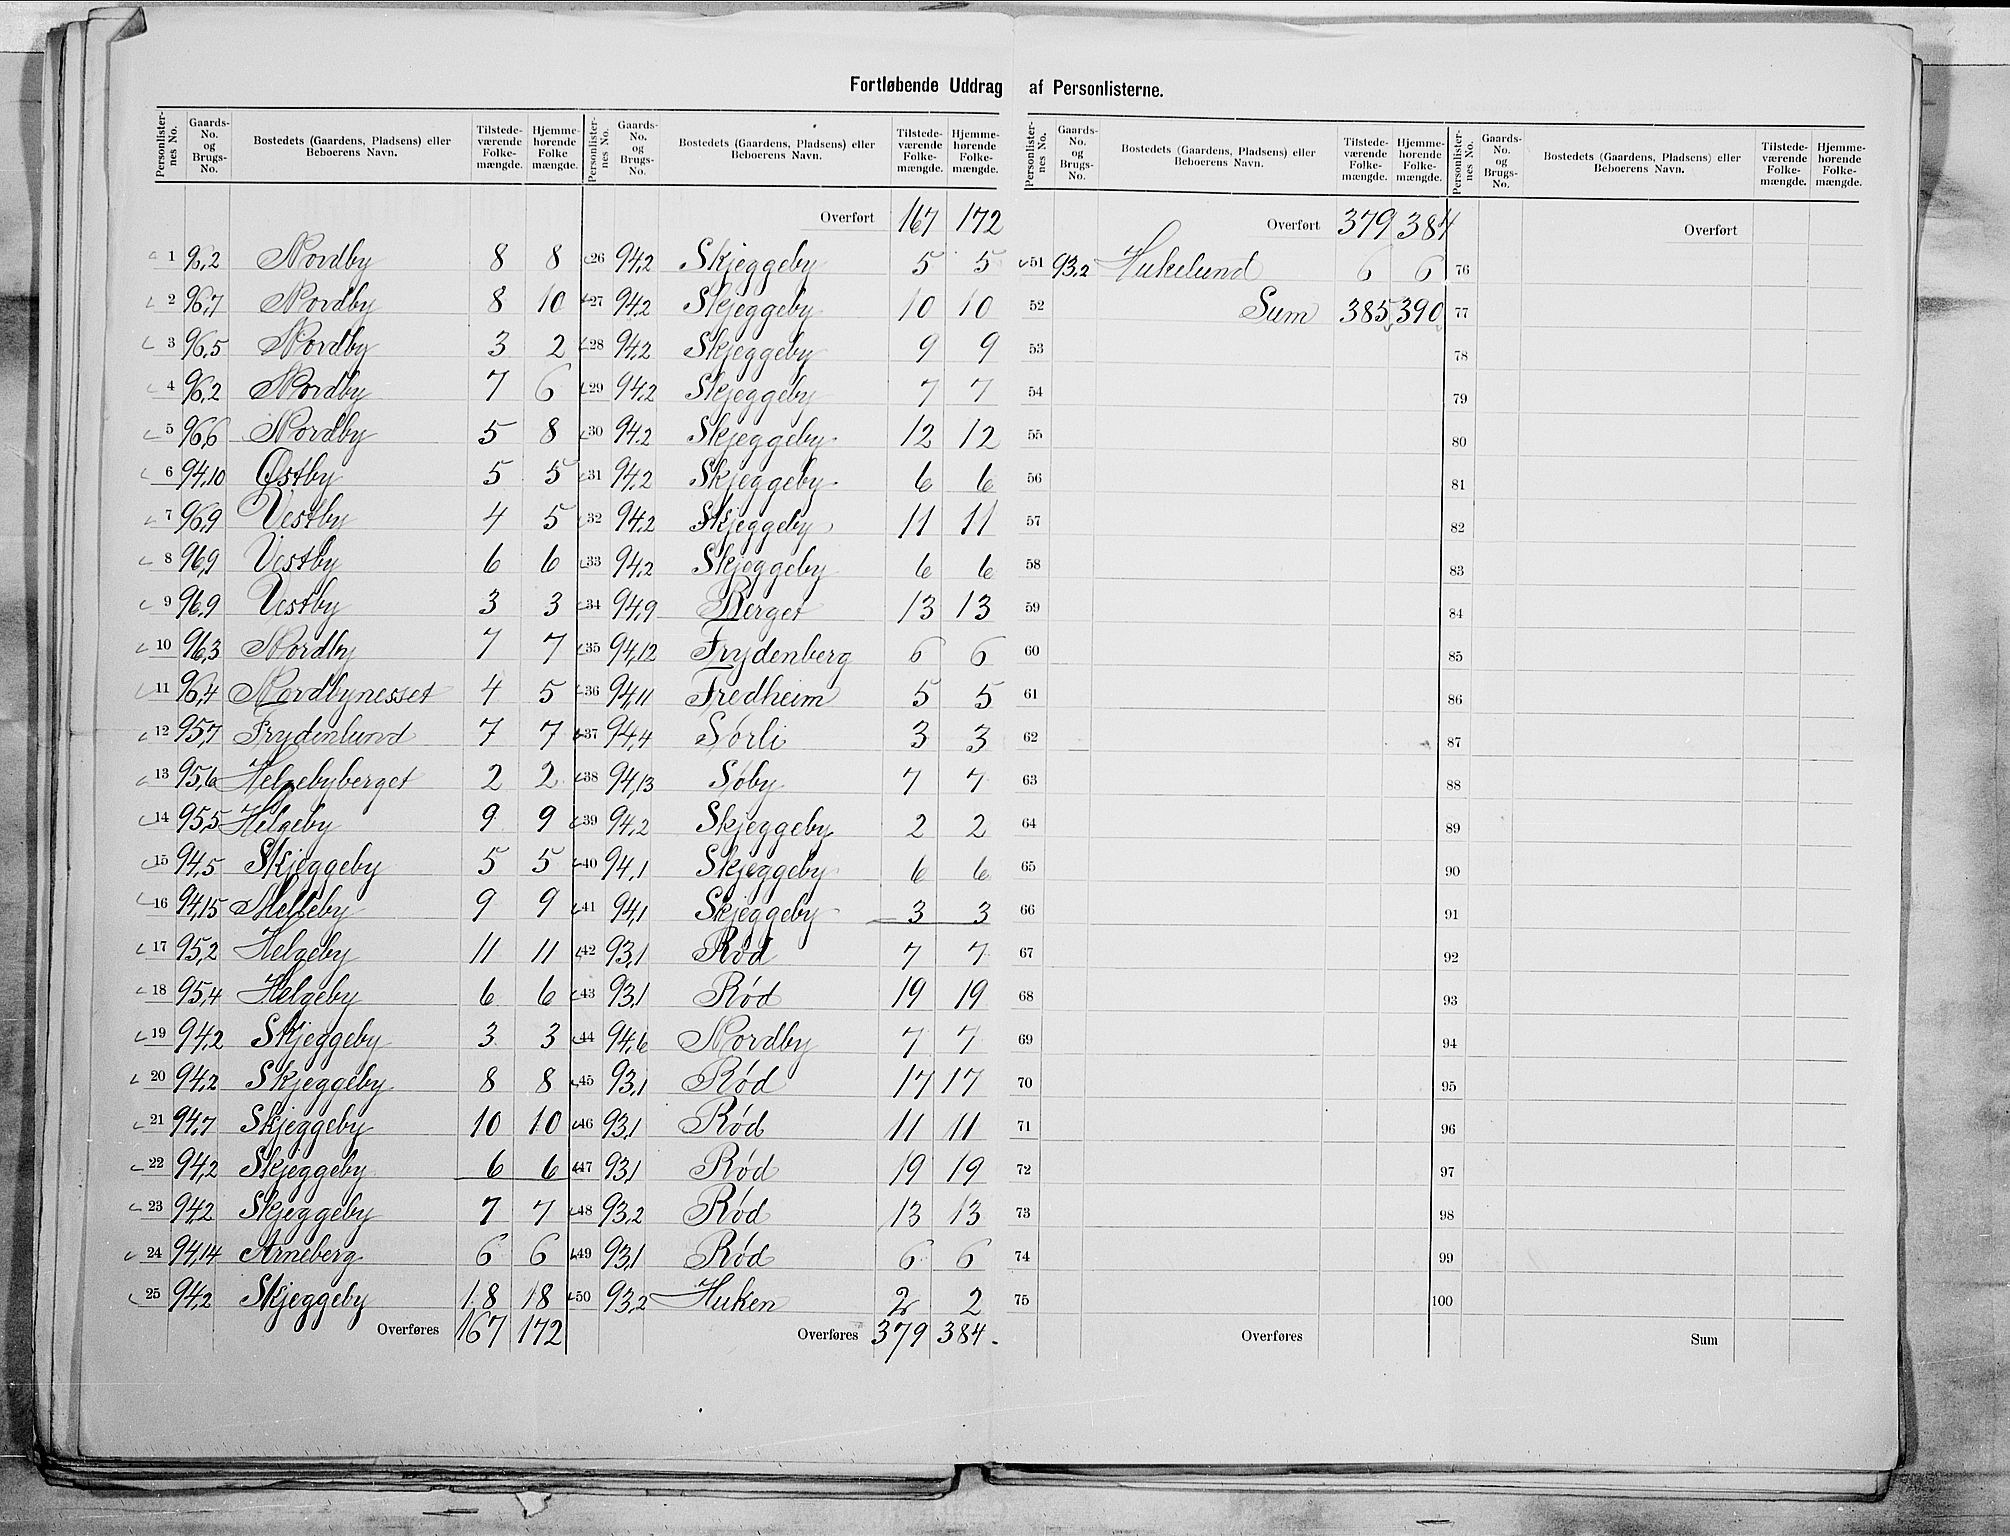 Fortløbende Uddrag af Personlisterne.
Personlisternes No. Gaards-No. og Brugs-No. Bostedets (Gaardens, Pladsens) eller Beboerens Navn. Tilstedeværende Folkemængde. Hjemmehørende Folkemængde.
1 96,2 Nordby 8 8
2 96,7 Nordby 8 10
3 96,5 Nordby 3 2
4 96,2 Nordby 7 6
5 96,6 Nordby 5 8
6 94,10 Østby 5 5
7 96,9 Vestby 4 5
8 96,9 Vestby 6 6
9 96,9 Vestby 3 3
10 96,3 Nordby 7 7
11 96,4 Nordbynesset 4 5
12 95,7 Frydenlund 7 7
13 95,6 Helgebyberget 2 2
14 95,5 Helgeby 9 9
15 94,5 Skjeggeby 5 5
16 94,15 Melleby 9 9
17 95,2 Helgeby 11 11
18 95,4 Helgeby 6 6
19 94,2 Skjeggeby 3 3
20 94,2 Skjeggeby 8 8
21 94,7 Skjeggeby 10 10
22 94,2 Skjeggeby 6 6
23 94,2 Skjeggeby 7 7
24 94,14 Arneberg 6 6
25 94,2 Skjeggeby 18 18
Overføres 167 172
Personlisternes No. Gaards-No. og Brugs-No. Bostedets (Gaardens, Pladsens) eller Beboerens Navn. Tilstedeværende Folkemængde. Hjemmehørende Folkemængde.
Overført 167 172
26 94,2 Skjeggeby 5 5
27 94,2 Skjeggeby 10 10
28 94,2 Skjeggeby 9 9
29 94,2 Skjeggeby 7 7
30 94,2 Skjeggeby 12 12
31 94,2 Skjeggeby 6 6
32 94,2 Skjeggeby 11 11
33 94,2 Skjeggeby 6 6
34 94,9 Berget 13 13
35 94,12 Frydenberg 6 6
36 94,11 Fredheim 5 5
37 94,4 Sørli 3 3
38 94,13 Søby 7 7
39 94,2 Skjeggeby 2 2
40 94,1 Skjeggeby 6 6
41 94,1 Skjeggeby 3 3
42 93,1 Rød 7 7
43 93,1 Rød 19 19
44 94,6 Nordby 7 7
45 93,1 Rød 17 17
46 93,1 Rød 11 11
47 93,1 Rød 19 19
48 93,2 Rød 13 13
49 93,1 Rød 6 6
50 93,2 Huken 2 2
Overføres 379 384
Personlisternes No. Gaards-No. og Brugs-No. Bostedets (Gaardens, Pladsens) eller Beboerens Navn. Tilstedeværende Folkemængde. Hjemmehørende Folkemængde.
Overført 379 384
51 93,2 Hukelund 6 6
52 Sum 385 390
53
54
55
56
57
58
59
60
61
62
63
64
65
66
67
68
69
70
71
72
73
74
75
Overføres
Personlisternes No. Gaards-No. og Brugs-No. Bostedets (Gaardens, Pladsens) eller Beboerens Navn. Tilstedeværende Folkemængde. Hjemmehørende Folkemængde.
Overført
76
77
78
79
80
81
82
83
84
85
86
87
88
89
90
91
92
93
94
95
96
97
98
99
100
Sum